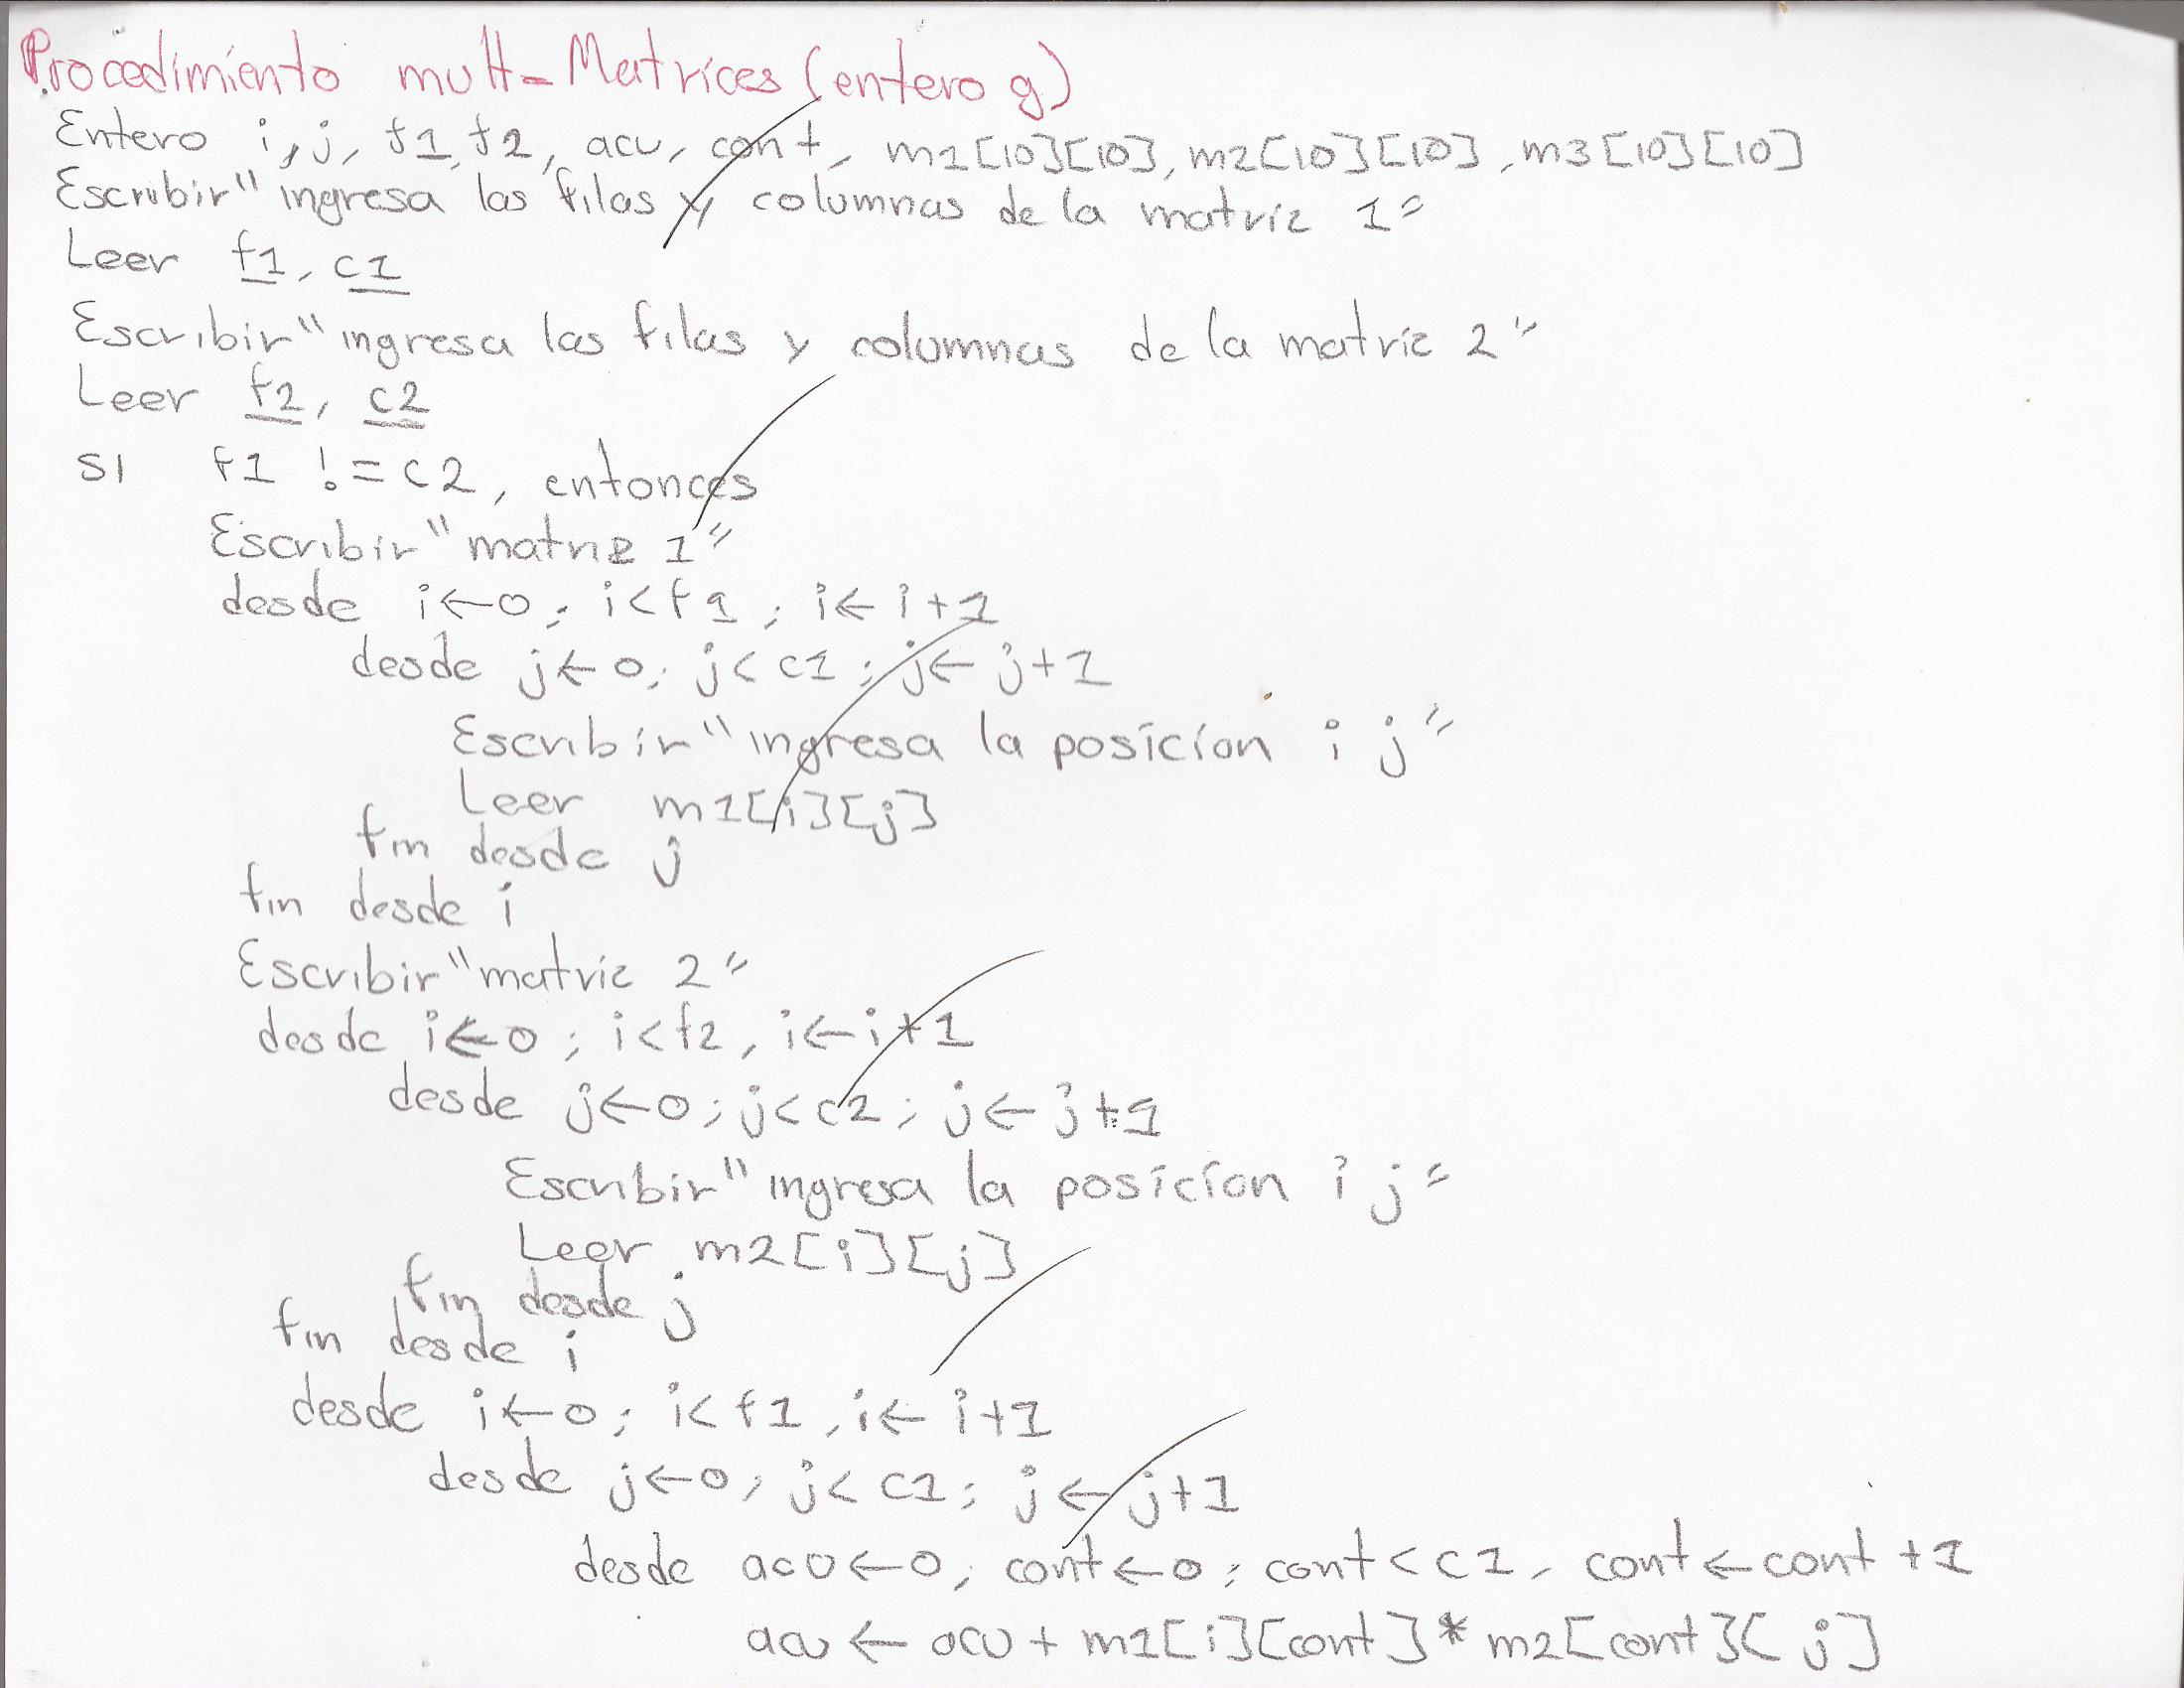 Procedimiento mult-Matrices (entero g)
Entero i, j, f1, f2, acu, cont, m1[10][10], m2[10][10], m3[10][10]
Escribir "ingresa las filas y columnas de la matriz 1"
Leer f1, c1
Escribir "ingresa las filas y columnas de la matriz 2"
Leer f2, c2
si f1 != c2, entonces
Escribir "matriz 1"
desde i←0; i<f1; i←i+1
desde j←0; j<c1; j←j+1
Escribir "ingresa la posicion i j"
Leer m1[i][j]
fin desde j
fin desde i
Escribir "matriz 2"
desde i←0; i<f2, i←i+1
desde j←0; j<c2; j←j+1
Escribir "ingresa la posicion i j"
Leer m2[i][j]
fin desde j
fin desde i
desde i←0; i<f1, i←i+1
desde j←0; j<c1; j←j+1
desde acu←0; cont←0; cont<c1, cont←cont+1
acu←acu+m1[i][cont]*m2[cont][j]